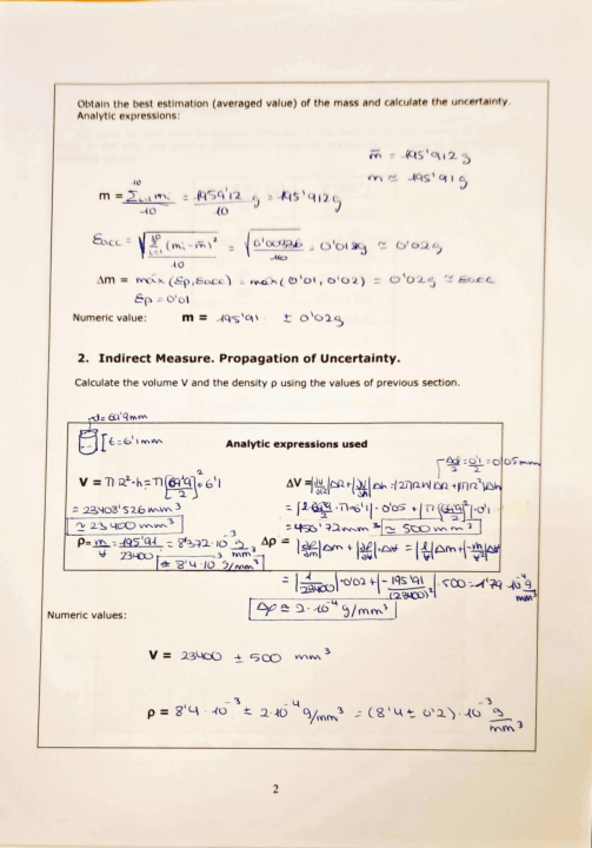 Obtain the best estimation (averaged value) of the mass and calculate the uncertainty.
Analytic expressions:
m̄ = 195'912 g
m ≃ 195'91 g
m = Σ(i=1..10) mi / 10 = 1959'12 / 10 g = 195'912 g
Eacc = √(Σ(i=1..10) (mi - m̄)² / 10) = √(0'00336 / 10) = 0'018g ≃ 0'02g
Δm = máx (Ep, Eacc) = max (0'01, 0'02) = 0'02g ≃ Eacc
Ep = 0'01
Numeric value: m = 195'91 ± 0'02g
2. Indirect Measure. Propagation of Uncertainty.
Calculate the volume V and the density ρ using the values of previous section.
d = 69'9mm
t = 6'1mm
Analytic expressions used
Δd/2 = 0'1/2 = 0'05mm
V = π R² · h = π [69'9/2]² · 6'1
ΔV = |∂V/∂R| ΔR + |∂V/∂h| Δh = |2πRh| ΔR + |πR²| Δh
= 23408'526 mm³
= |2 · 69'9/2 · π · 6'1| · 0'05 + |π (69'9/2)²| · 0'1
≃ 23400 mm³
= 450'72mm³ ≃ 500mm³
ρ = m/V = 195'91/23400 = 8'372 · 10⁻³ g/mm³
Δρ = |∂ρ/∂m| Δm + |∂ρ/∂V| · ΔV = |1/V| Δm + |-m/V²| ΔV
≃ 8'4 · 10⁻³ g/mm³
= |1/23400| · 0'02 + |-195'91/(23400)²| · 500 = 1'79 · 10⁻⁴ g/mm³
Δρ ≃ 2 · 10⁻⁴ g/mm³
Numeric values:
V = 23400 ± 500 mm³
ρ = 8'4 · 10⁻³ ± 2 · 10⁻⁴ g/mm³ = (8'4 ± 0'2) · 10⁻³ g/mm³
2